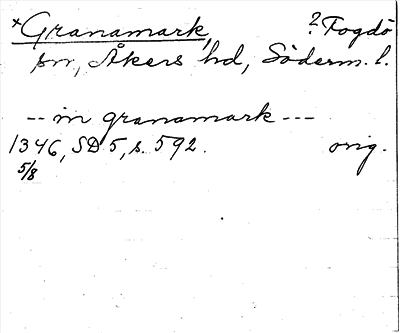 *Granamark, ? Fogdö
sn, Åkers hd, Söderm. l.
-- in granamark ---
1346, SD 5, s. 592. orig.
5/8